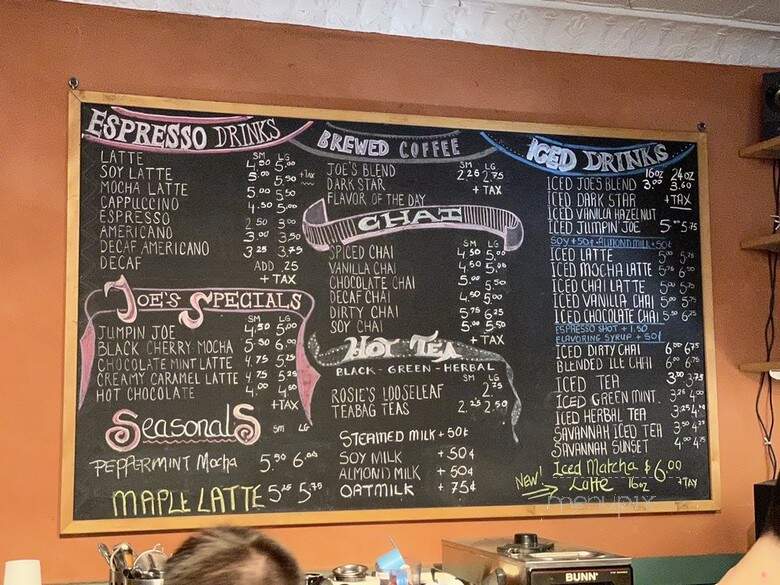 ESPRESSO DRINKS
SM LG
LATTE 4.50 5.00
SOY LATTE 5.00 5.50 + TAX
MOCHA LATTE 5.00 5.50
CAPPUCCINO 4.50 5.00
ESPRESSO 2.50 3.00
AMERICANO 3.00 3.50
DECAF AMERICANO 3.25 3.75
DECAF ADD .25
+ TAX
JOE'S SPECIALS
SM LG
JUMPIN JOE 4.50 5.00
BLACK CHERRY MOCHA 5.50 6.00
CHOCOLATE MINT LATTE 4.75 5.25
CREAMY CARAMEL LATTE 4.75 5.25
HOT CHOCOLATE 4.00 4.50
+TAX
SEASONALS SM LG
PEPPERMINT Mocha 5.50 6.00
MAPLE LATTE 5.25 5.75
BREWED COFFEE
SM LG
JOE'S BLEND 2.25 2.75
DARK STAR + TAX
FLAVOR OF THE DAY
CHAI
SM LG
SPICED CHAI 4.50 5.00
VANILLA CHAI 4.50 5.00
CHOCOLATE CHAI 5.00 5.50
DECAF CHAI 4.50 5.00
DIRTY CHAI 5.75 6.25
SOY CHAI 5.00 5.50
+ TAX
HOT TEA
BLACK - GREEN - HERBAL
SM LG
ROSIE'S LOOSELEAF 2.75
TEABAG TEAS 2.25 2.50
STEAMED MILK + 50¢
SOY MILK + 50¢
ALMOND MILK + 50¢
OATMILK + 75¢
ICED DRINKS
16oz 24oz
ICED JOES BLEND 3.00 3.60
ICED DARK STAR +TAX
ICED VANILLA HAZELNUT
ICED JUMPIN' JOE 5.00 5.75
SOY +50¢ ALMOND MILK +50¢
ICED LATTE 5.00 5.75
ICED MOCHA LATTE 5.75 6.50
ICED CHAI LATTE 5.00 5.75
ICED VANILLA CHAI 5.00 5.75
ICED CHOCOLATE CHAI 5.50 6.25
ESPRESSO SHOT + 1.50
FLAVORING SYRUP + 50¢
ICED DIRTY CHAI 6.00 6.75
BLENDED ICE CHAI 6.00 6.75
ICED TEA 3.00 3.75
ICED GREEN MINT 3.25 4.00
ICED HERBAL TEA 3.25 4.00
SAVANNAH ICED TEA 3.50 4.25
SAVANNAH SUNSET 4.00 4.75
NEW! Iced Matcha $6.00
Latte 16oz +TAX
menupix
BUNN